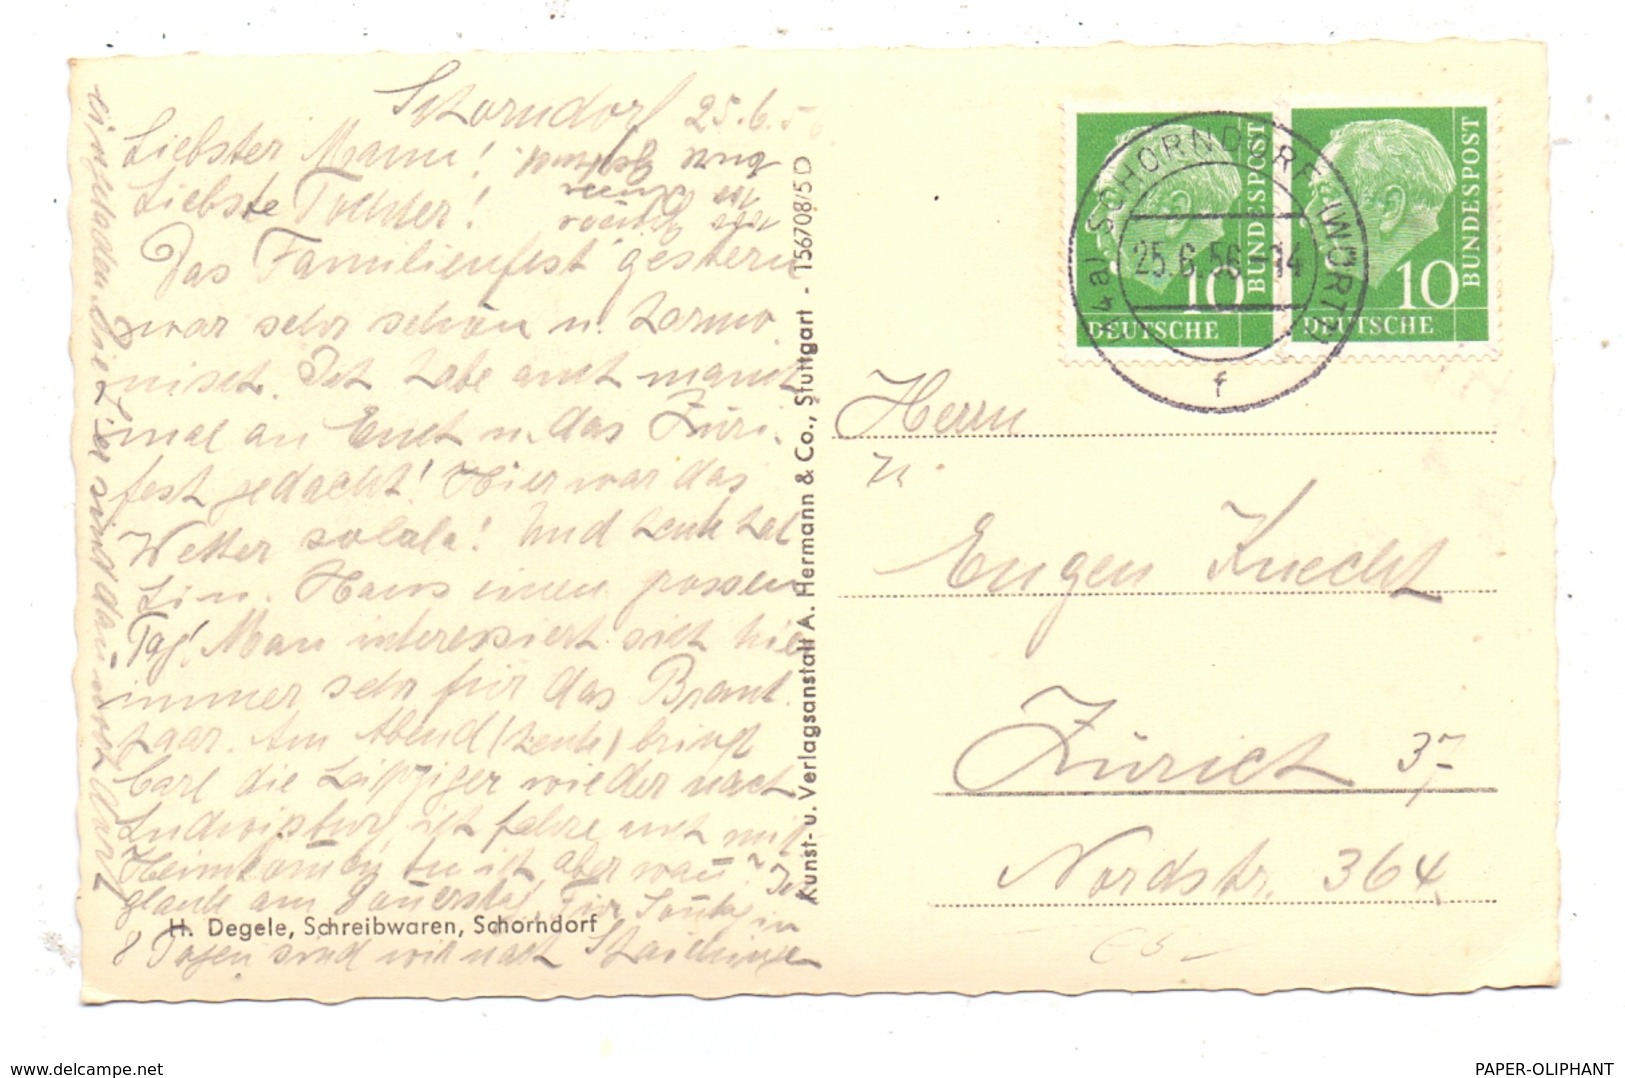 Schorndorf 25.6.56
Liebster Mann!
Liebste Tochter!
Das Familienfest gestern
war sehr schön u. harmo-
nisch. Ich habe auch manch
mal an Euch u. das Züri-
fest gedacht! Hier war das
Wetter solala! Und heute hat
Lin. Hans einen grossen
Tag! Man interessiert sich hie
immer sehr für das Braut
paar. Am Abend (heute) bringt
Carl die Leipziger wieder nach
Ludwigsburg ich fahre auch mit
Heimkommen tu ich aber wann? Ich
glaube am Donnerstag. Für Sonntag in
8 Tagen sind wir nach
eingeladen. Die L'ser sind dann noch dort
H. Degele, Schreibwaren, Schorndorf
Kunst- u. Verlagsanstalt A. Hermann & Co., Stuttgart - 156708/5 D
(14a) SCHORNDORF (WÜRTT)
25.6.56-14
f
10
DEUTSCHE
BUNDESPOST
10
DEUTSCHE
BUNDESPOST
Herrn
Eugen Knecht
Zürich 37
Nordstr. 364
www.delcampe.net
PAPER-OLIPHANT